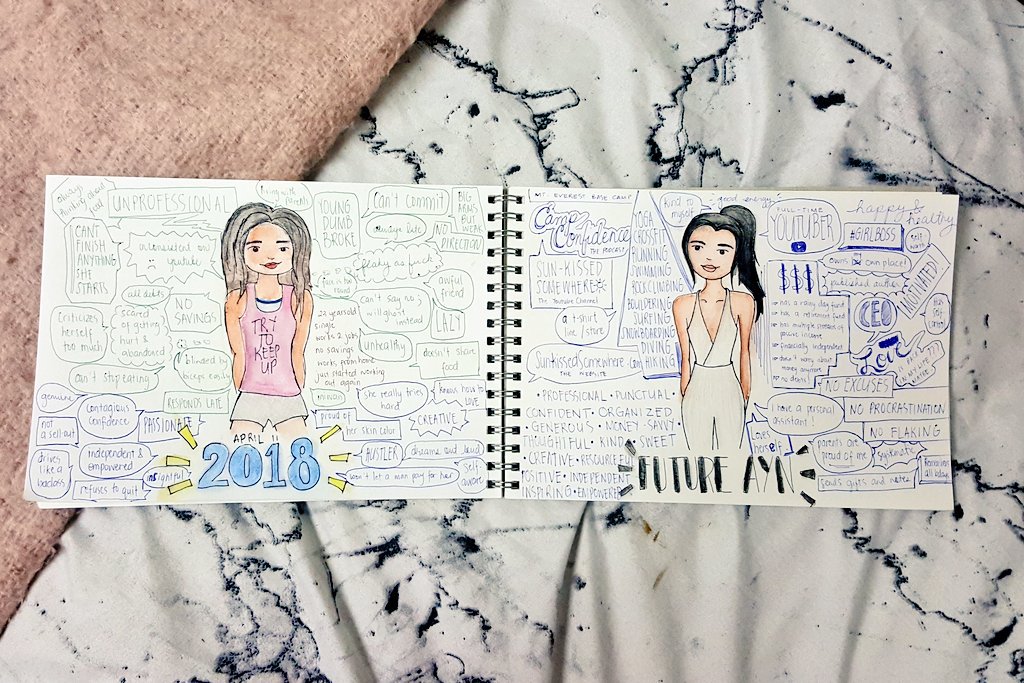 always
thinking about
food
UNPROFESSIONAL
living with
parents
YOUNG
DUMB
BROKE
can't commit
BIG
DREAMS BUT
WEAK
CAN'T
FINISH
ANYTHING
SHE
STARTS
inconsistent on
youtube
always late
NO
DIRECTION
flaky as fuck
awful
friend
all debts
NO
SAVINGS
can't say no
will ghost
instead
LAZY
criticizes
herself
too much
scared
of getting
hurt &
abandoned
TRY
TO
KEEP
UP
22 years old
single
works 2 jobs
no savings
works from home
just started working
out again
unhealthy
doesn't share
food
blinded by
biceps easily
can't stop eating
RESPONDS LATE
genuine
contagious
confidence
PASSIONATE
not
a sell-out
proud of
her skin color
she really tries
hard
knows how to
LOVE
CREATIVE
drives
like a
badass
independent &
empowered
insightful
refuses to quit
HUSTLER
dreams out loud
won't let a man pay for her
self
aware
APRIL 11
2018
MT. EVEREST BASE CAMP
Camp
Confidence
THE PODCAST
SUN-KISSED
SOMEWHERE
The Youtube Channel
a t-shirt
line/store
Sunkissedsomewhere.com
THE WEBSITE
YOGA
CROSSFIT
RUNNING
SWIMMING
ROSSCLIMBING
BOULDERING
SURFING
SNOWBOARDING
DIVING
HIKING
• PROFESSIONAL • PUNCTUAL •
CONFIDENT • ORGANIZED
• GENEROUS • MONEY-SAVVY
THOUGHTFUL • KIND • SWEET
• CREATIVE • RESOURCEFUL
POSITIVE • INDEPENDENT
INSPIRING • EMPOWERED
kind to
myself
good energy
FULL-TIME
YOUTUBER
happy &
healthy
#GIRLBOSS
self
worth
owns her own place!
published author
MOTIVATED!
$$$
• has a rainy day fund
• has a retirement fund
• has multiple streams of
passive income
• financially independent
• doesn't worry about
money anymore
• no debts!
CEO
Love
NO EXCUSES
I have a personal
assistant!
NO PROCRASTINATION
NO FLAKING
loves
herself
parents are
proud of me
sends gifts and notes
FUTURE AYN